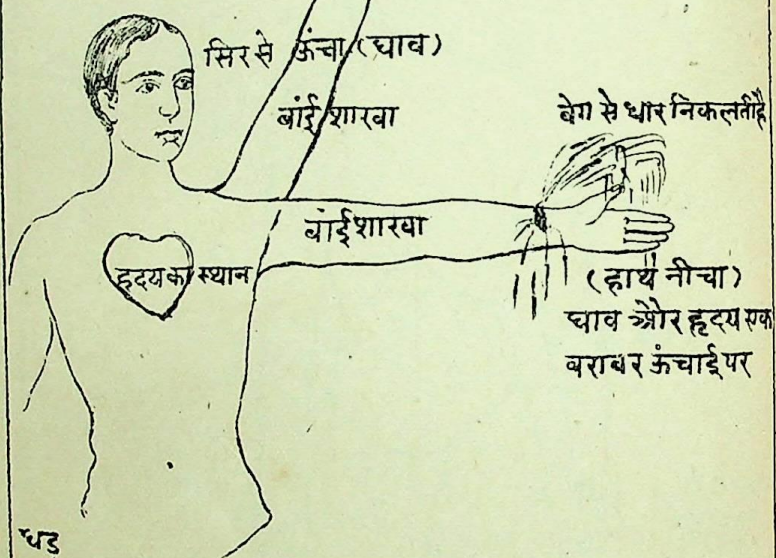 सिर से ऊंचा (घाव)
बांई शाखा
बेग से धार निकलती है
बांई शाखा
हृदय का स्थान
(हाथ नीचा)
घाव और हृदय एक
बराबर ऊंचाई पर
धड